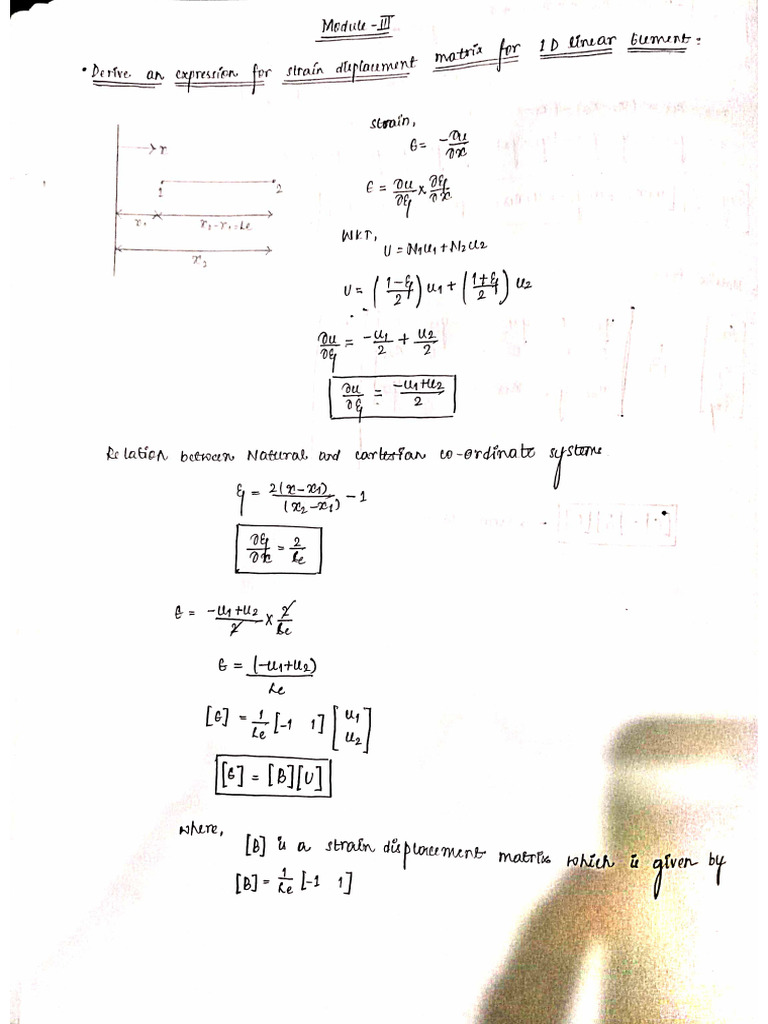 Module - III
• Derive an expression for strain displacement matrix for 1D linear Element:
→ x
1 2
x₁ x₂-x₁=Le
x₂
Strain,
ϵ = -∂u/∂x
ϵ = ∂u/∂ξ × ∂ξ/∂x
WKT,
U = N₁u₁ + N₂u₂
U = ((1-ξ)/2) u₁ + ((1+ξ)/2) u₂
∂u/∂ξ = -u₁/2 + u₂/2
∂u/∂ξ = (-u₁+u₂)/2
Relation between Natural and cartesian co-ordinate systems
ξ = 2(x-x₁)/(x₂-x₁) - 1
∂ξ/∂x = 2/Le
ϵ = (-u₁+u₂)/2 × 2/Le
ϵ = (-u₁+u₂)/Le
[ϵ] = 1/Le [-1 1] [u₁ u₂]
[ϵ] = [B][U]
where,
[B] is a strain displacement matrix which is given by
[B] = 1/Le [-1 1]